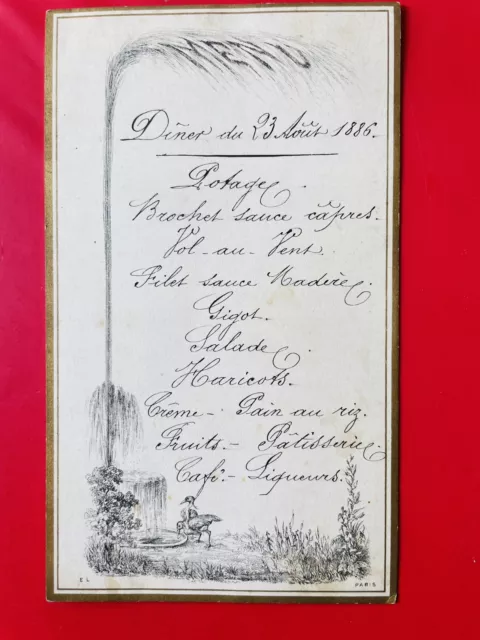 MENU
Dîner du 23 Août 1886.
Potage.
Brochet sauce câpres.
Vol-au-Vent
Filet sauce Madère.
Gigot.
Salade.
Haricots.
Crème - Pain au riz.
Fruits. - Pâtisserie
Café. - Liqueurs.
E L
PARIS